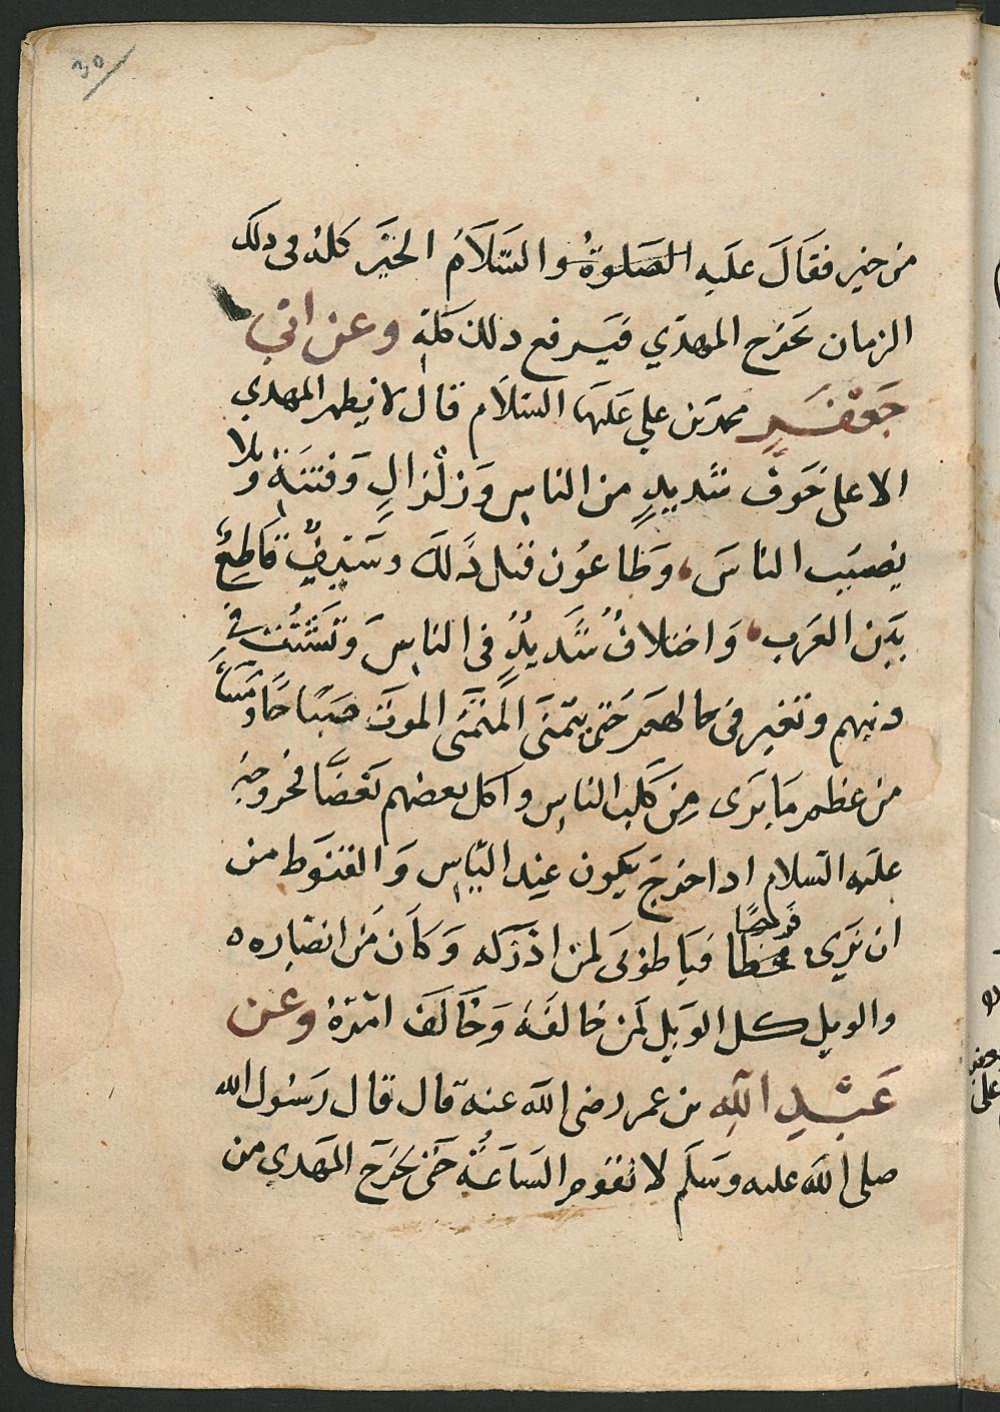 30
من خير فقَالَ علَيه الصَلوةُ والسَّلَامُ الخَيَر كلهُ فى ذلك
الزمان يخَرج المهدّي فيَرفع ذلك كلهِ وعن ابي
جَعْفَرٍ محمد بن علي عَليهَا السّلاَم قال لا يظهر المهدي
الا على خَوف شَديدٍ من الناسِ وَزلْزالٍ وَفتنَةٍ وبلا
يصيَب الناسَ وَطاعُون قبل ذَلكَ وسَيفٌ قاطِعٌ
بيَن العَرب وَاختلافٌ شَديدٌ في الناسِ وَتَشَتُّت في
دينهم وتغير فى حالهم حَتى يتمنَى المُتمَنَى الموت صَبَاحًا وَمسَآءً
من عظم مَا يَرى مِن كَلَب الناسِ واكل بعضهم بَعضًا فخروجهُ
عليه السّلام اذا خرَجَ يكون عِند اليَاسِ وَالقنوَط من
ان نَرى فرَجًا فيَا طوبَى لمن ادْرَكه وَكاَن مَن انصَاره ه
والويل كل الويَل لمَن خالفَهُ وَخَالَفَ امَرهُ وعن
عَبْدِ اللّهِ بن عمر رضى اللّه عنه قال قال رَسُول الله
صلى اللّه عليه وسَلم لا تقوم السَاعَةُ حَتى يَخرَج المَهدي من